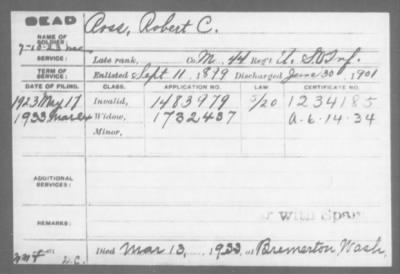 DEAD
NAME OF SOLDIER: Ross, Robert C.
SERVICE: Late rank, Co. M, 44 Reg't U. S. V. Inf.
TERM OF SERVICE: Enlisted Sept 11, 1899 Discharged June 30, 1901
DATE OF FILING. CLASS. APPLICATION NO. LAW CERTIFICATE NO.
1923 May 17 Invalid, 1483979 1234185
1933 Mar 24 Widow, 1732437 a-6-14-34
Minor,
ADDITIONAL SERVICES:
REMARKS:
Died Mar 13, 1933, at Bremerton, Wash.